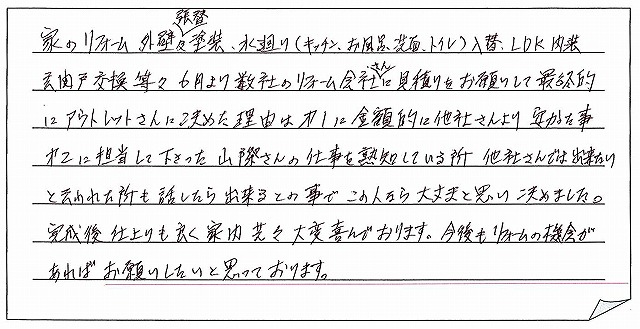 家のリフォーム 外壁張替&塗装、水廻り(キッチン、お風呂、洗面、トイレ)入替、LDK内装
玄関戸交換等々 6月より数社のリフォーム会社さんに見積りをお願いして最終的
にアウトレットさんに決めた理由は オ1に金額的に他社さんより安かった事
オ2に担当して下さった山際さんの仕事を熟知している所 他社さんでは出来ない
と云われた所も話したら出来るとの事で この人なら大丈夫と思い決めました。
完成後 仕上りも良く家内共々大変喜んでおります。今後もリフォームの機会が
あればお願いしたいと思っております。